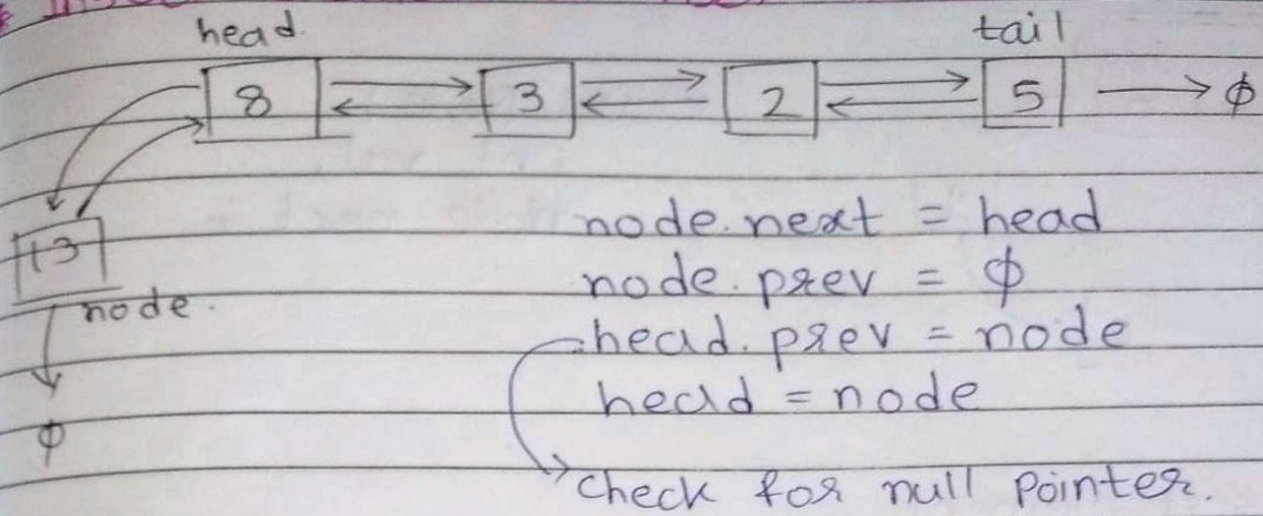 head
tail
8 3 2 5 → φ
13
node.
φ
node.next = head
node.prev = φ
head.prev = node
head = node
Check for null pointer.